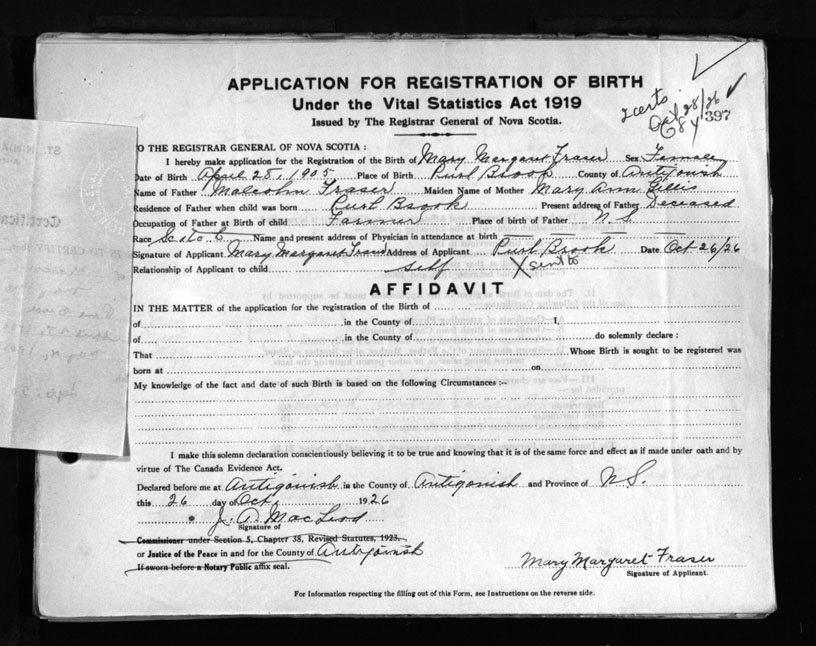 APPLICATION FOR REGISTRATION OF BIRTH
Under the Vital Statistics Act 1919
Issued by The Registrar General of Nova Scotia.
2 certs
Oct 28/26
397
TO THE REGISTRAR GENERAL OF NOVA SCOTIA :
I hereby make application for the Registration of the Birth of Mary Margaret Fraser Sex Female
Date of Birth April 25, 1905 Place of Birth Purl Brook County of Antigonish
Name of Father Malcolm Fraser Maiden Name of Mother Mary Ann Gillis
Residence of Father when child was born Purl Brook Present address of Father Deceased
Occupation of Father at Birth of child Farmer Place of birth of Father N. S.
Race Scotch Name and present address of Physician in attendance at birth
Signature of Applicant Mary Margaret Fraser Address of Applicant Purl Brook Date Oct 26/26
Relationship of Applicant to child self X sent to
AFFIDAVIT
IN THE MATTER of the application for the registration of the Birth of
of in the County of I,
of in the County of do solemnly declare :
That Whose Birth is sought to be registered was
born at on
My knowledge of the fact and date of such Birth is based on the following Circumstances :-
I make this solemn declaration conscientiously believing it to be true and knowing that it is of the same force and effect as if made under oath and by
virtue of The Canada Evidence Act.
Declared before me at Antigonish in the County of Antigonish and Province of N.S.
this 26 day of Oct. 1926
J. A. MacLeod
Signature of
Commissioner under Section 5, Chapter 38, Revised Statutes, 1923,
or Justice of the Peace in and for the County of Antigonish
If sworn before a Notary Public affix seal.
Mary Margaret Fraser
Signature of Applicant.
For Information respecting the filling out of this Form, see Instructions on the reverse side.